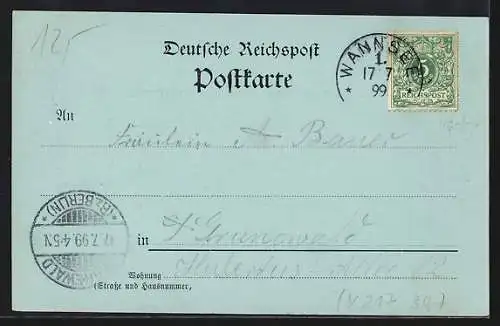 125
Deutsche Reichspost
Postkarte
WANNSEE
1.
17 7
99
5
REICHSPOST
An
Fräulein A. Bauer
(BZ. BERLIN)
17.7.99.4-5N.
GRUNEWALD
in Grunewald
Hubertus Allee
Wohnung
(Straße und Hausnummer)